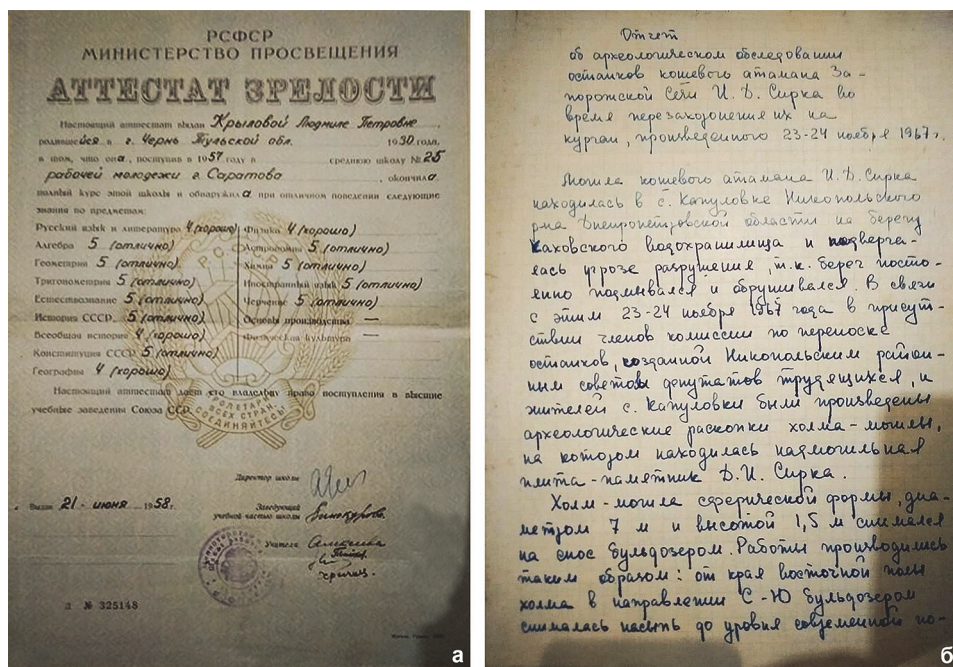 РСФСР
МИНИСТЕРСТВО ПРОСВЕЩЕНИЯ
АТТЕСТАТ ЗРЕЛОСТИ
Настоящий аттестат выдан Крыловой Людмиле Петровне
родившейся в г. Чернь Тульской обл. 1930 года,
в том, что она, поступив в 1957 году в среднюю школу № 25
рабочей молодежи г. Саратова, окончила
полный курс этой школы и обнаружила при отличном поведении следующие
знания по предметам:
Русский язык и литература 4 (хорошо)
Алгебра 5 (отлично)
Геометрия 5 (отлично)
Тригонометрия 5 (отлично)
Естествознание 5 (отлично)
История СССР 5 (отлично)
Всеобщая история 4 (хорошо)
Конституция СССР 5 (отлично)
География 4 (хорошо)
Физика 4 (хорошо)
Астрономия 5 (отлично)
Химия 5 (отлично)
Иностранный язык 5 (отлично)
Черчение 5 (отлично)
Основы производства —
Физическая культура —
Настоящий аттестат дает его владельцу право поступления в высшие
учебные заведения Союза ССР.
ПРОЛЕТАРИИ
ВСЕХ СТРАН,
СОЕДИНЯЙТЕСЬ!
Директор школы
Выдан 21 - июня 1958 г.
Заведующий
учебной частью школы
Учителя
Л № 325148
а
Отчет
об археологическом обследовании
останков кошевого атамана За-
порожской Сечи И. Д. Сирка во
время перезахоронения их на
курган, произведенного 23-24 ноября 1967 г.
Могила кошевого атамана И. Д. Сирка
находилась в с. Капуловке Никопольского
р-на Днепропетровской области на берегу
Каховского водохранилища и подверга-
лась угрозе разрушения, т.к. берег посто-
янно подмывался и обрушивался. В связи
с этим 23-24 ноября 1967 года в присут-
ствии членов комиссии по переноске
останков, созданной Никопольским район-
ным советом депутатов трудящихся, и
жителей с. Капуловки были произведены
археологические раскопки холма-могилы,
на котором находилась надмогильная
плита-памятник Д. И. Сирка.
Холм-могила сферической формы, диа-
метром 7 м и высотой 1,5 м снимался
на снос бульдозером. Работы производились
таким образом: от края восточной полы
холма в направлении С-Ю бульдозером
снималась насыпь до уровня современной по-
б